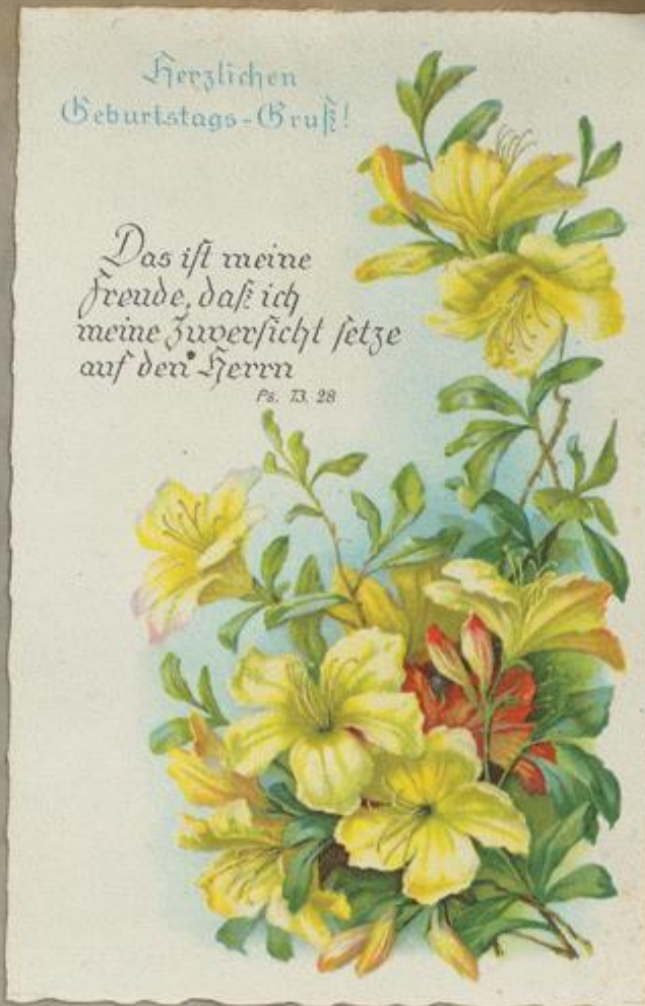 Herzlichen
Geburtstags-Gruß!
Das ist meine
Freude, daß ich
meine Zuversicht setze
auf den Herrn
Ps. 73. 28